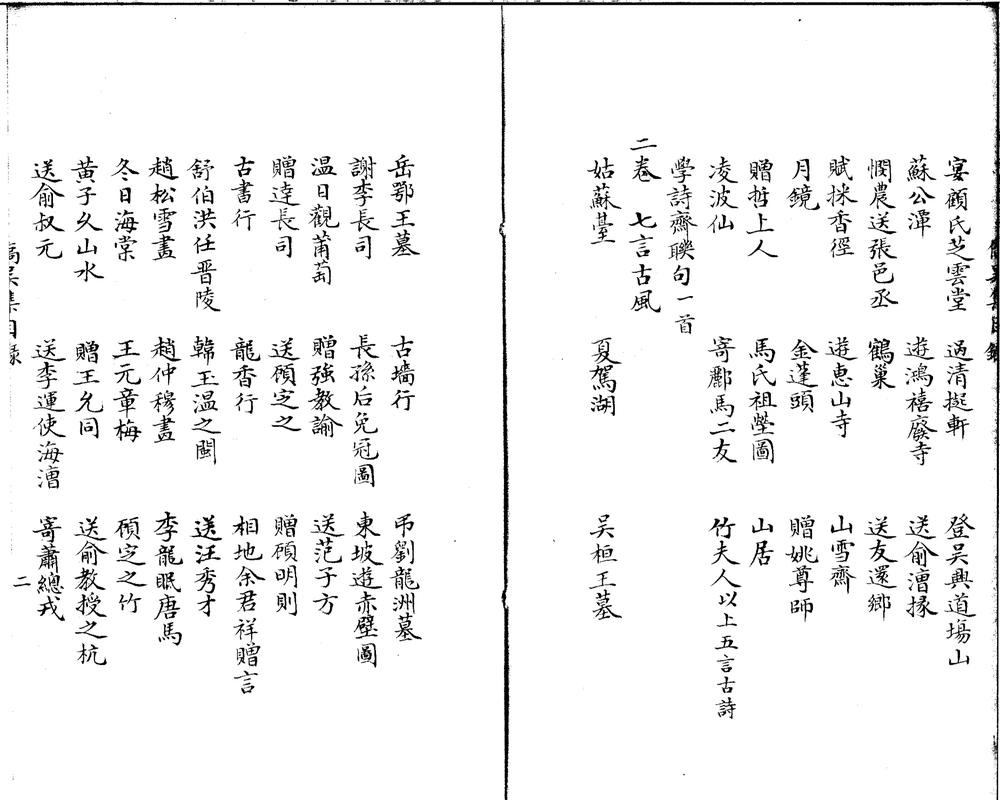 宴顧氏芝雲堂　過清挹軒　登吴興道場山
蘇公潭　遊鴻禧廢寺　送俞漕掾
憫農送張邑丞　鶴巢　送友還鄉
賦採香徑　遊惠山寺　山雪齋
月鏡　金蓬頭　贈姚尊師
贈哲上人　馬氏祖塋圖　山居
凌波仙　寄鄺馬二友　竹夫人以上五言古詩
學詩齋聯句一首
二卷　七言古風
姑蘇臺　夏駕湖　吴桓王墓
岳鄂王墓　古墻行　弔劉龍洲墓
謝李長司　長孫后免冠圖　東坡遊赤壁圖
温日觀葡萄　贈強教諭　送范子方
贈達長司　送顧定之　贈顧明則
古書行　龍香行　相地余君祥贈言
舒伯洪任晋陵　韓玉温之閩　送汪秀才
趙松雪畫　趙仲穆畫　李龍眠唐馬
冬日海棠　王元章梅　顧定之竹
黄子久山水　贈王允同　送俞教授之杭
送俞叔元　送李運使海漕　寄蕭總戎
僑吴集目錄　二